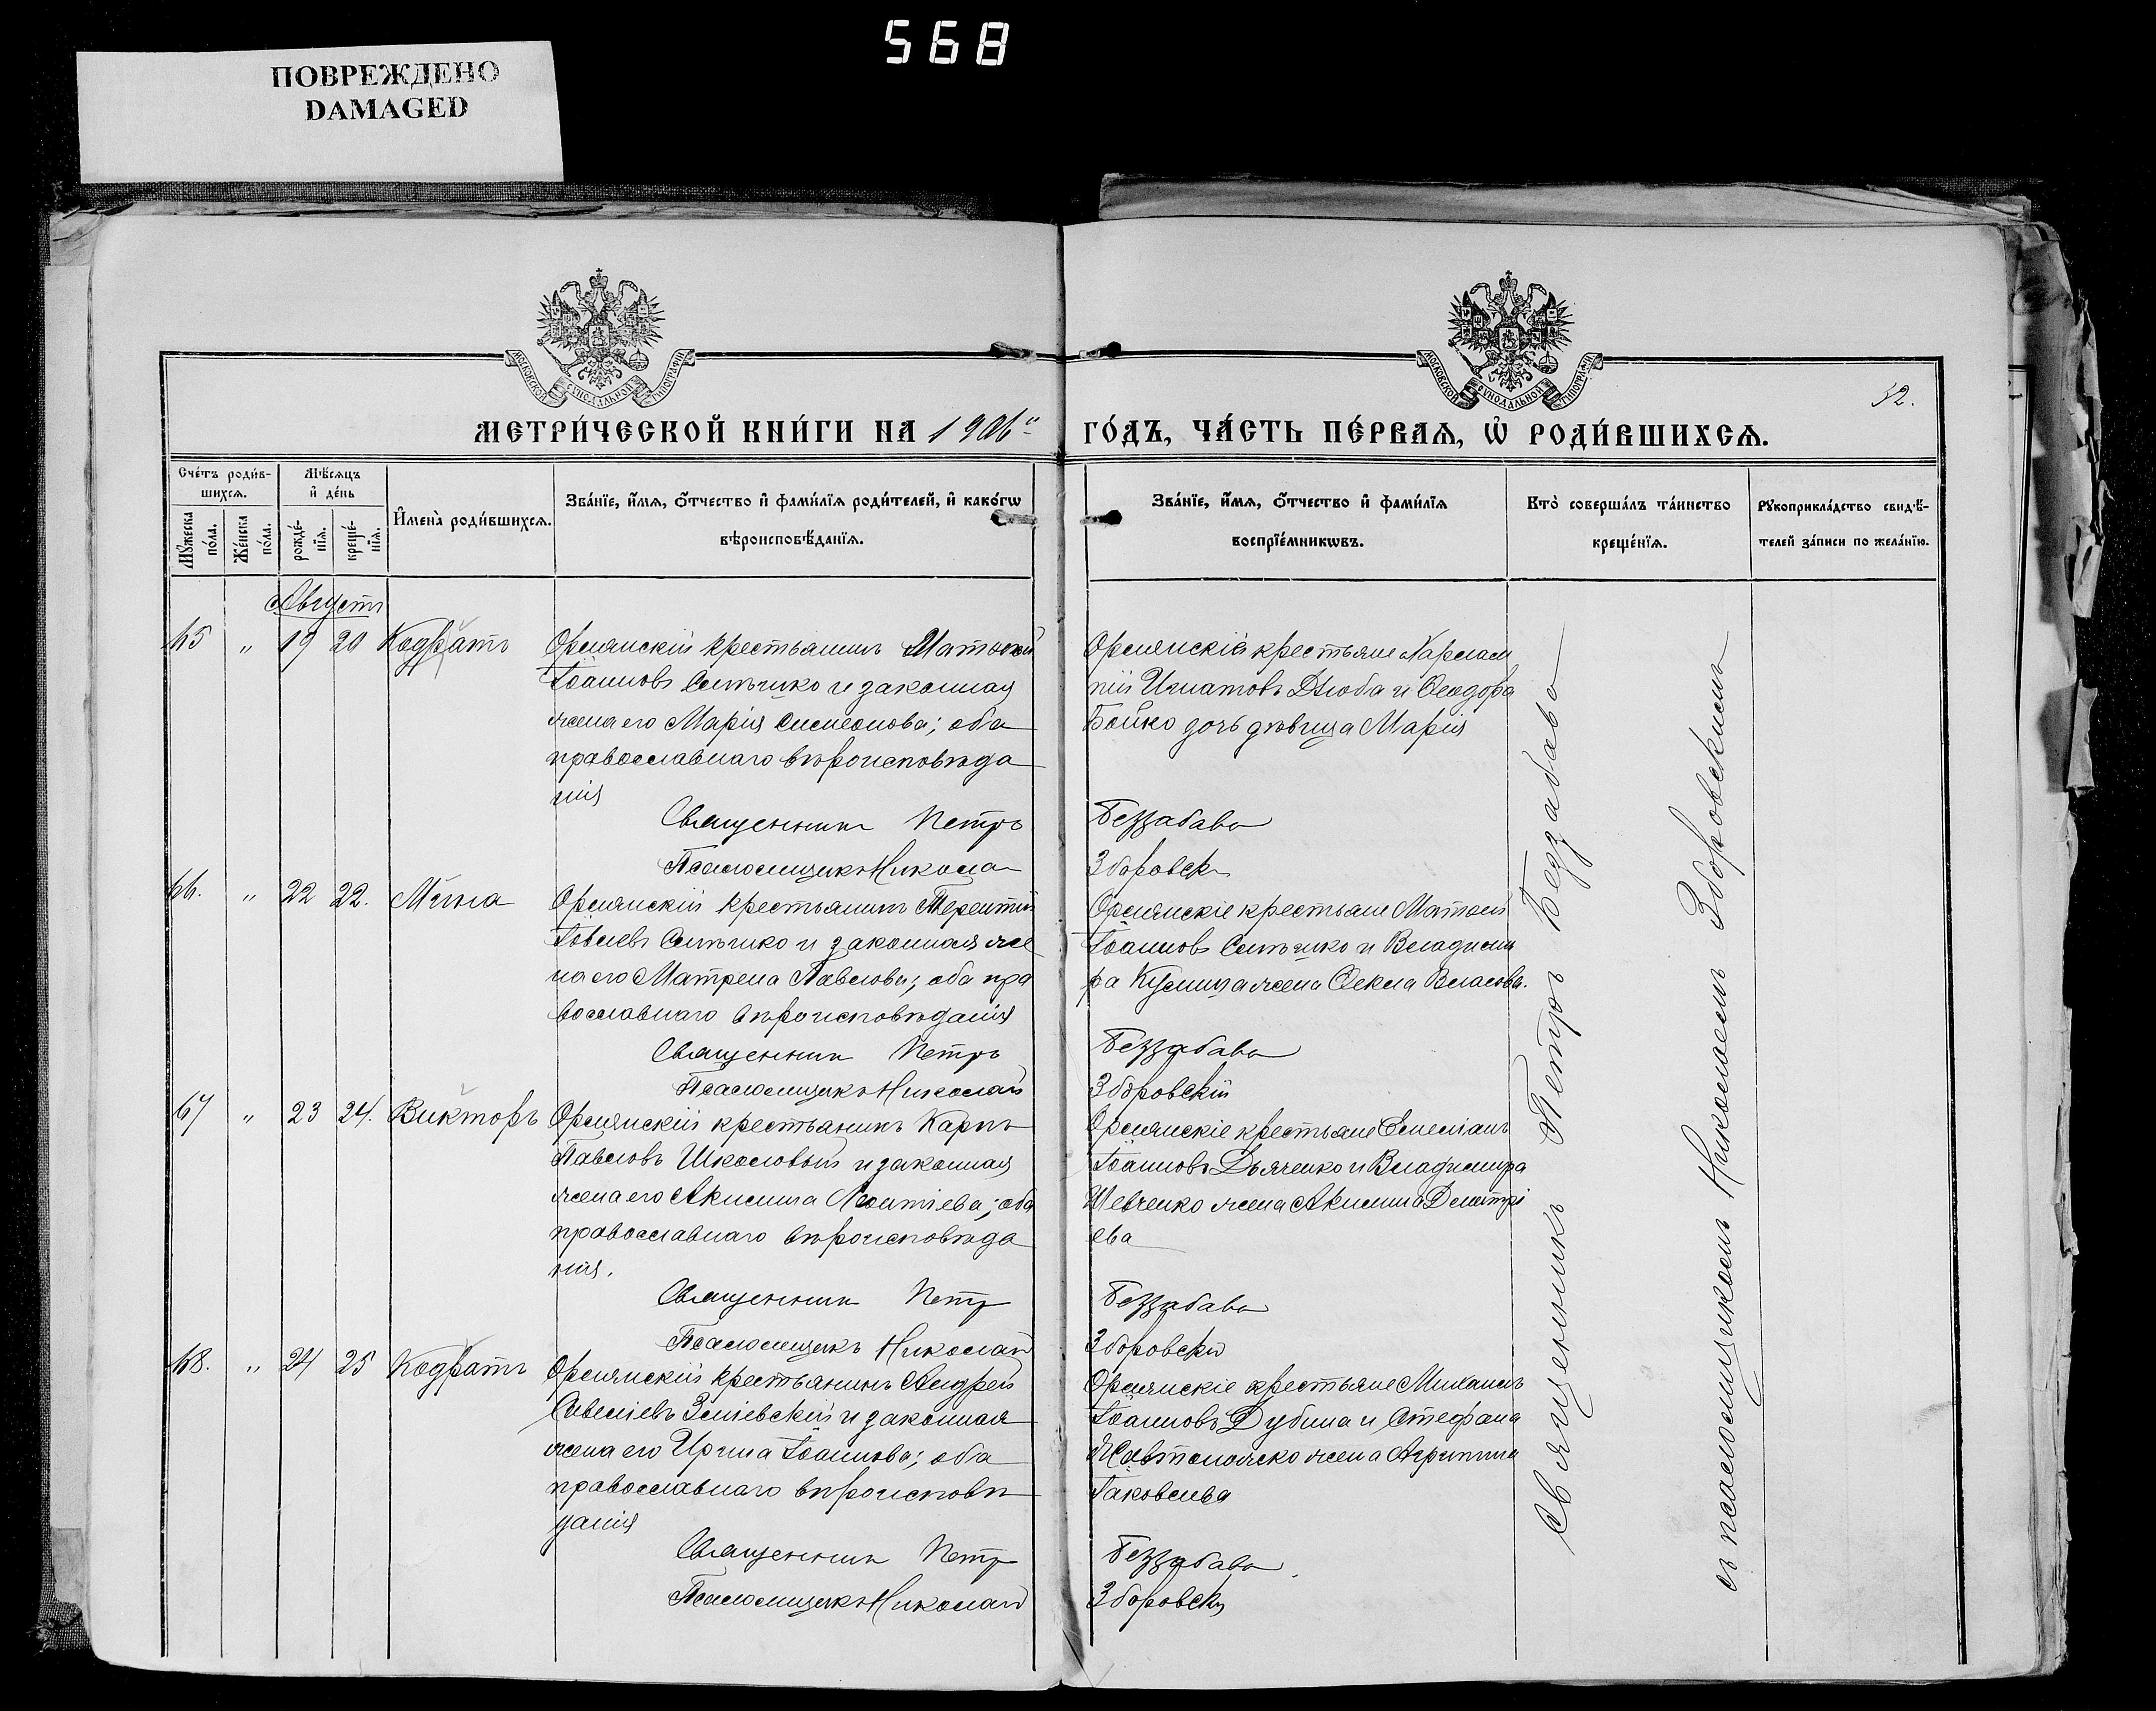 568
ПОВРЕЖДЕНО
DAMAGED
МОСКОВСКОЙ СУНОДАЛЬНОЙ ТИПОГРАФІИ
МОСКОВСКОЙ СУНОДАЛЬНОЙ ТИПОГРАФІИ
52.
МЕТРИ́ЧЕСКОЙ КНИ́ГИ НА 1906 й
ГО́ДЪ, ЧА́СТЬ ПЕ́РВАЯ, Ѡ҆ РОДИ́ВШИХСЯ.
Сче́тъ роди́вшихся.
Мꙋ́жеска по́ла.
Же́нска по́ла.
Мѣ́сяцъ и҆ де́нь
рожде́нїя.
креще́нїя.
И҆мена̀ роди́вшихся.
Зва́нїе, и҆́мя, ѻ҆́тчество и҆ фами́лїя роди́телей, и҆ како́гѡ
вѣроисповѣ́данїя.
Зва́нїе, и҆́мя, ѻ҆́тчество и҆ фами́лїя
воспрїе́мникѡвъ.
Кто̀ соверша́лъ та́инство
креще́нїя.
Рꙋкоприкла́дство свидѣ́-
телей за́писи по жела́нїю.
Августъ
65 " 19 20 Кодратъ
Орлянскій крестьянинъ Матѳей
Іоанновъ Сытько и законная
жена его Марія Симеонова; оба
православнаго вѣроисповѣда
нія
Священникъ Петръ
Псаломщикъ Никола
Орлянскіе крестьяне Харлам
пій Игнатовъ Дзюба и Ѳеодора
Бойко дочь дѣвица Марія
Беззабава
Зборовск
66. " 22 22. Мина
Орлянскій крестьянинъ Терентій
Іовлевъ Сытько и законная же
на его Матрена Павлова; оба пра
вославнаго вѣроисповѣданія
Священник Петръ
Псаломщикъ Николай
Орлянскіе крестьяне Матѳей
Іоанновъ Сытько и Владими
ра Кулиша жена Ѳекла Власова.
Беззабава
Зборовскій
67 " 23 24. Викторъ
Орлянскій крестьянинъ Карпъ
Павловъ Школовый и законная
жена его Акилина Леонтіева; оба
православнаго вѣроисповѣда
нія.
Священник Петр
Псаломщикъ Николай
Орлянскіе крестьяне Емеліанъ
Іоанновъ Дьяченко и Владиміра
Шевченко жена Акилина Димитрі
ева
Беззабава
Зборовскій
68. " 24 25 Кодратъ
Орлянскій крестьянинъ Андрей
Савеліевъ Зміевскій и законная
жена его Ирина Іоаннова; оба
православнаго вѣроисповѣ
данія
Священник Петр
Псаломщикъ Николай
Орлянскіе крестьяне Михаилъ
Іоанновъ Дубина и Стефана
Жена Агрипина
Іаковлева
Беззабава.
Зборовскій
Священникъ Петръ Беззабава
съ псаломщикомъ Николаемъ Зборовскимъ